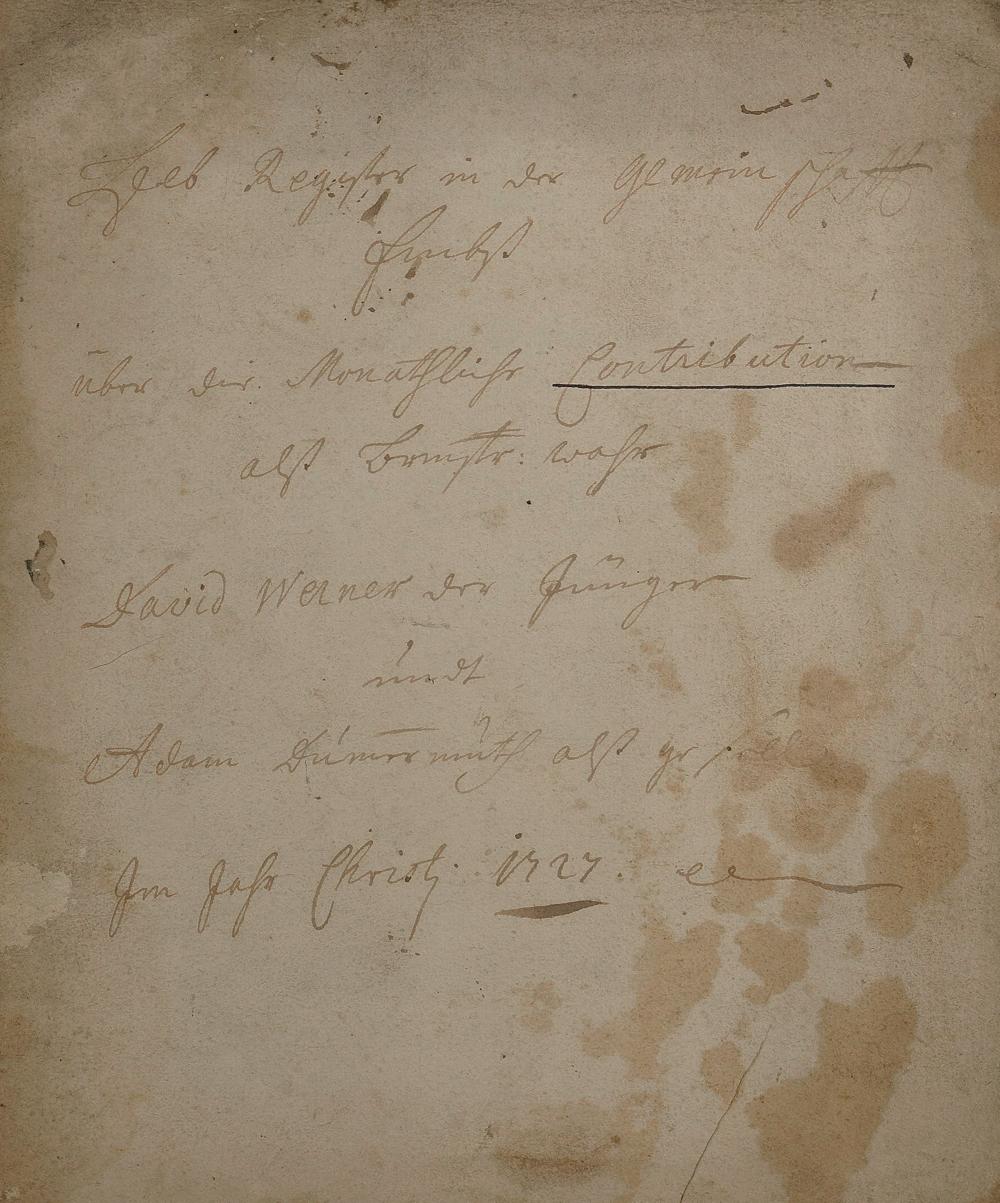 Heb Register in der Gemeinschafft
über die Monathliche Contribution
alß wahr
David Werner der Jünger
undt
Adam Dümermuth alß
Im Jahr Christj 1727.